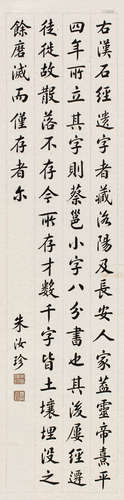 右漢石經遺字者藏洛陽及長安人家蓋靈帝熹平
四年所立其字則蔡邕小字八分書也其後屢經遷
徙故散落不存今所存才數千字皆土壤埋没之
餘磨滅而僅存者尔
朱汝珍